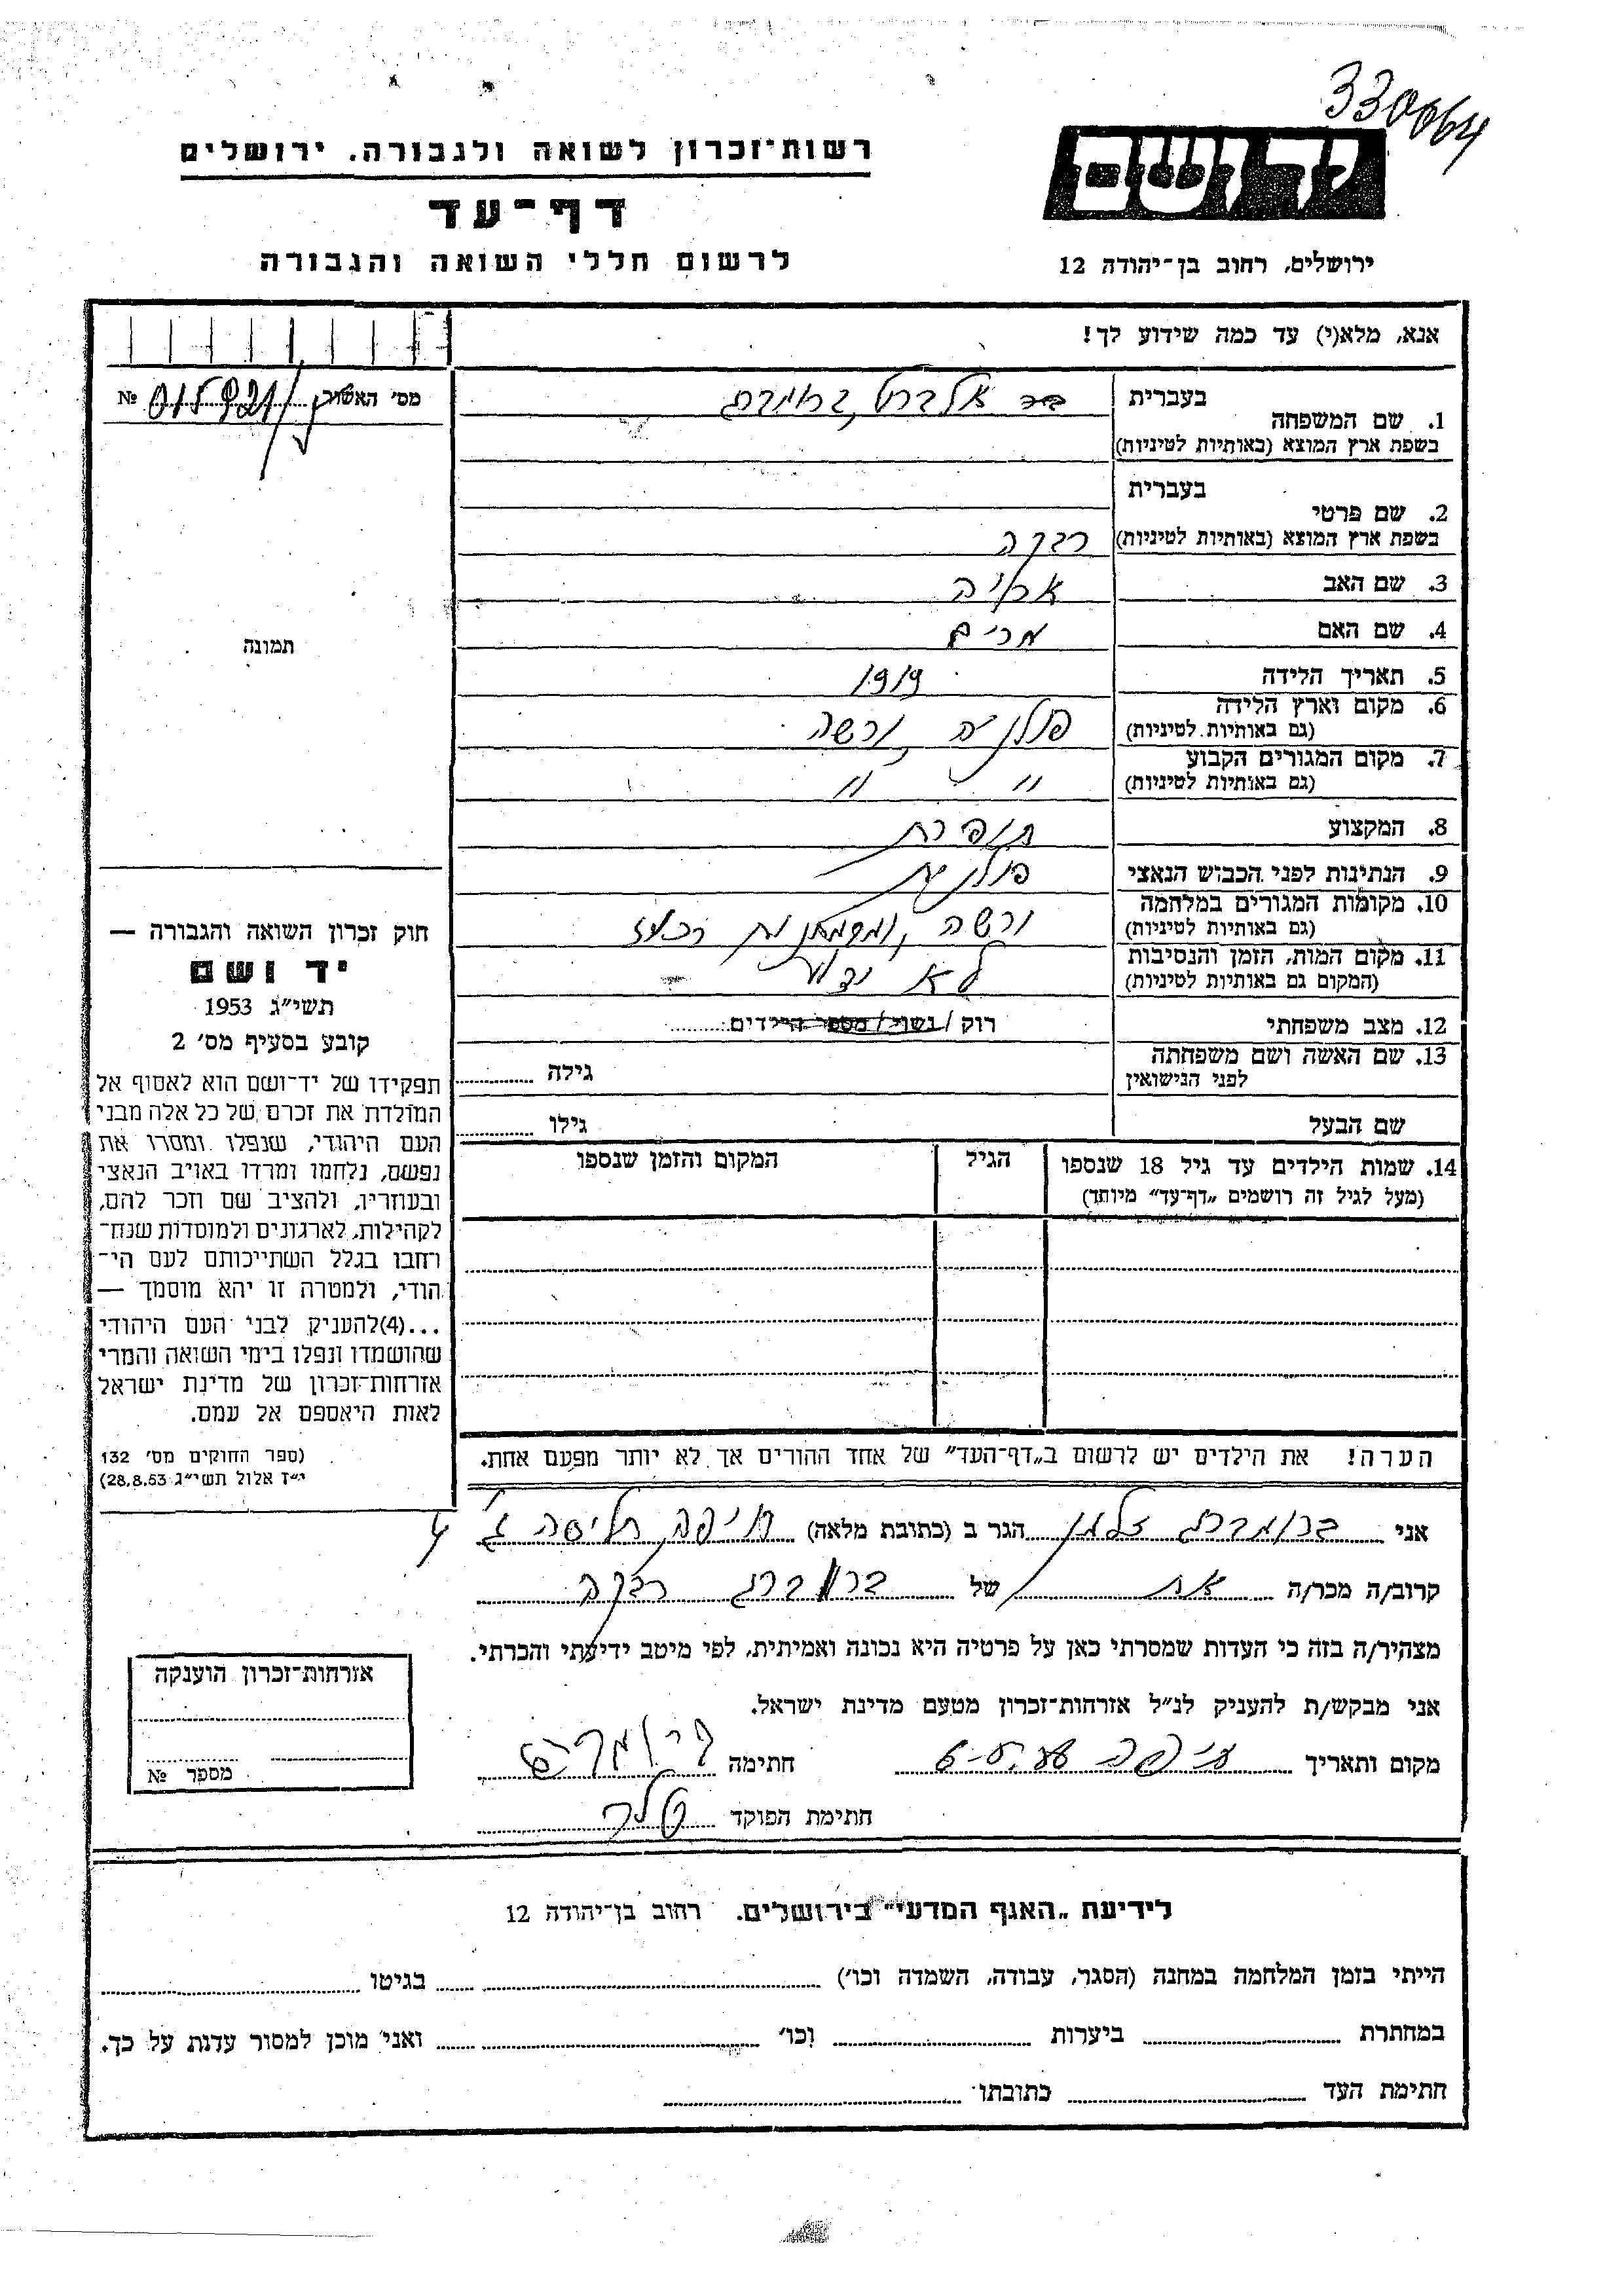 330064
רשות־זכרון לשואה ולגבורה. ירושלים
יד ושם
דף־עד
לרשום חללי השואה והגבורה
ירושלים, רחוב בן־יהודה 12
אנא, מלא(י) עד כמה שידוע לך!
מס׳ האשור № 015921
1. שם המשפחה
בעברית
בשפת ארץ המוצא (באותיות לטיניות)
2. שם פרטי
בעברית
בשפת ארץ המוצא (באותיות לטיניות) רבקה
3. שם האב אריה
4. שם האם מרים
5. תאריך הלידה 1919
6. מקום וארץ הלידה
(גם באותיות לטיניות) פולניה, ורשה
7. מקום המגורים הקבוע
(גם באותיות לטיניות) " "
8. המקצוע תופרת
9. הנתינות לפני הכבוש הנאצי פולנית
10. מקומות המגורים במלחמה
(גם באותיות לטיניות) ורשה,
11. מקום המות, הזמן והנסיבות
(המקום גם באותיות לטיניות) לא ידוע
12. מצב משפחתי רוק / נשוי / מספר הילדים
13. שם האשה ושם משפחתה
לפני הנישואין גילה
שם הבעל גילו
14. שמות הילדים עד גיל 18 שנספו הגיל המקום והזמן שנספו
(מעל לגיל זה רושמים „דף־עד" מיוחד)
הערה! את הילדים יש לרשום ב„דף־העד" של אחד ההורים אך לא יותר מפעם אחת.
תמונה
חוק זכרון השואה והגבורה —
יד ושם
תשי״ג 1953
קובע בסעיף מס׳ 2
תפקידו של יד־ושם הוא לאסוף אל
המולדת את זכרם של כל אלה מבני
העם היהודי, שנפלו ומסרו את
נפשם, נלחמו ומרדו באויב הנאצי
ובעוזריו, ולהציב שם וזכר להם,
לקהילות, לארגונים ולמוסדות שנח־
רחבו בגלל השתייכותם לעם הי־
הודי, ולמטרה זו יהא מוסמך —
...(4)להעניק לבני העם היהודי
שהושמדו ונפלו בימי השואה והמרי
אזרחות־זכרון של מדינת ישראל
לאות היאספם אל עמם.
(ספר החוקים מס׳ 132
י״ז אלול תשי״ג 28.8.53)
אני ברומברג זלמן הגר ב (כתובת מלאה) חיפה חליסה ג׳ 4
קרוב/ה מכר/ה אח של ברומברג רבקה
מצהיר/ה בזה כי העדות שמסרתי כאן על פרטיה היא נכונה ואמיתית, לפי מיטב ידיעתי והכרתי.
אני מבקש/ת להעניק לנ״ל אזרחות־זכרון מטעם מדינת ישראל.
מקום ותאריך חיפה חתימה
חתימת הפוקד
אזרחות־זכרון הוענקה
מספר №
לידיעת „האגף המדעי" בירושלים. רחוב בן־יהודה 12
הייתי בזמן המלחמה במחנה (הסגר, עבודה, השמדה וכו׳) בגיטו
במחתרת ביערות וכו׳ ואני מוכן למסור עדות על כך.
חתימת העד כתובתו